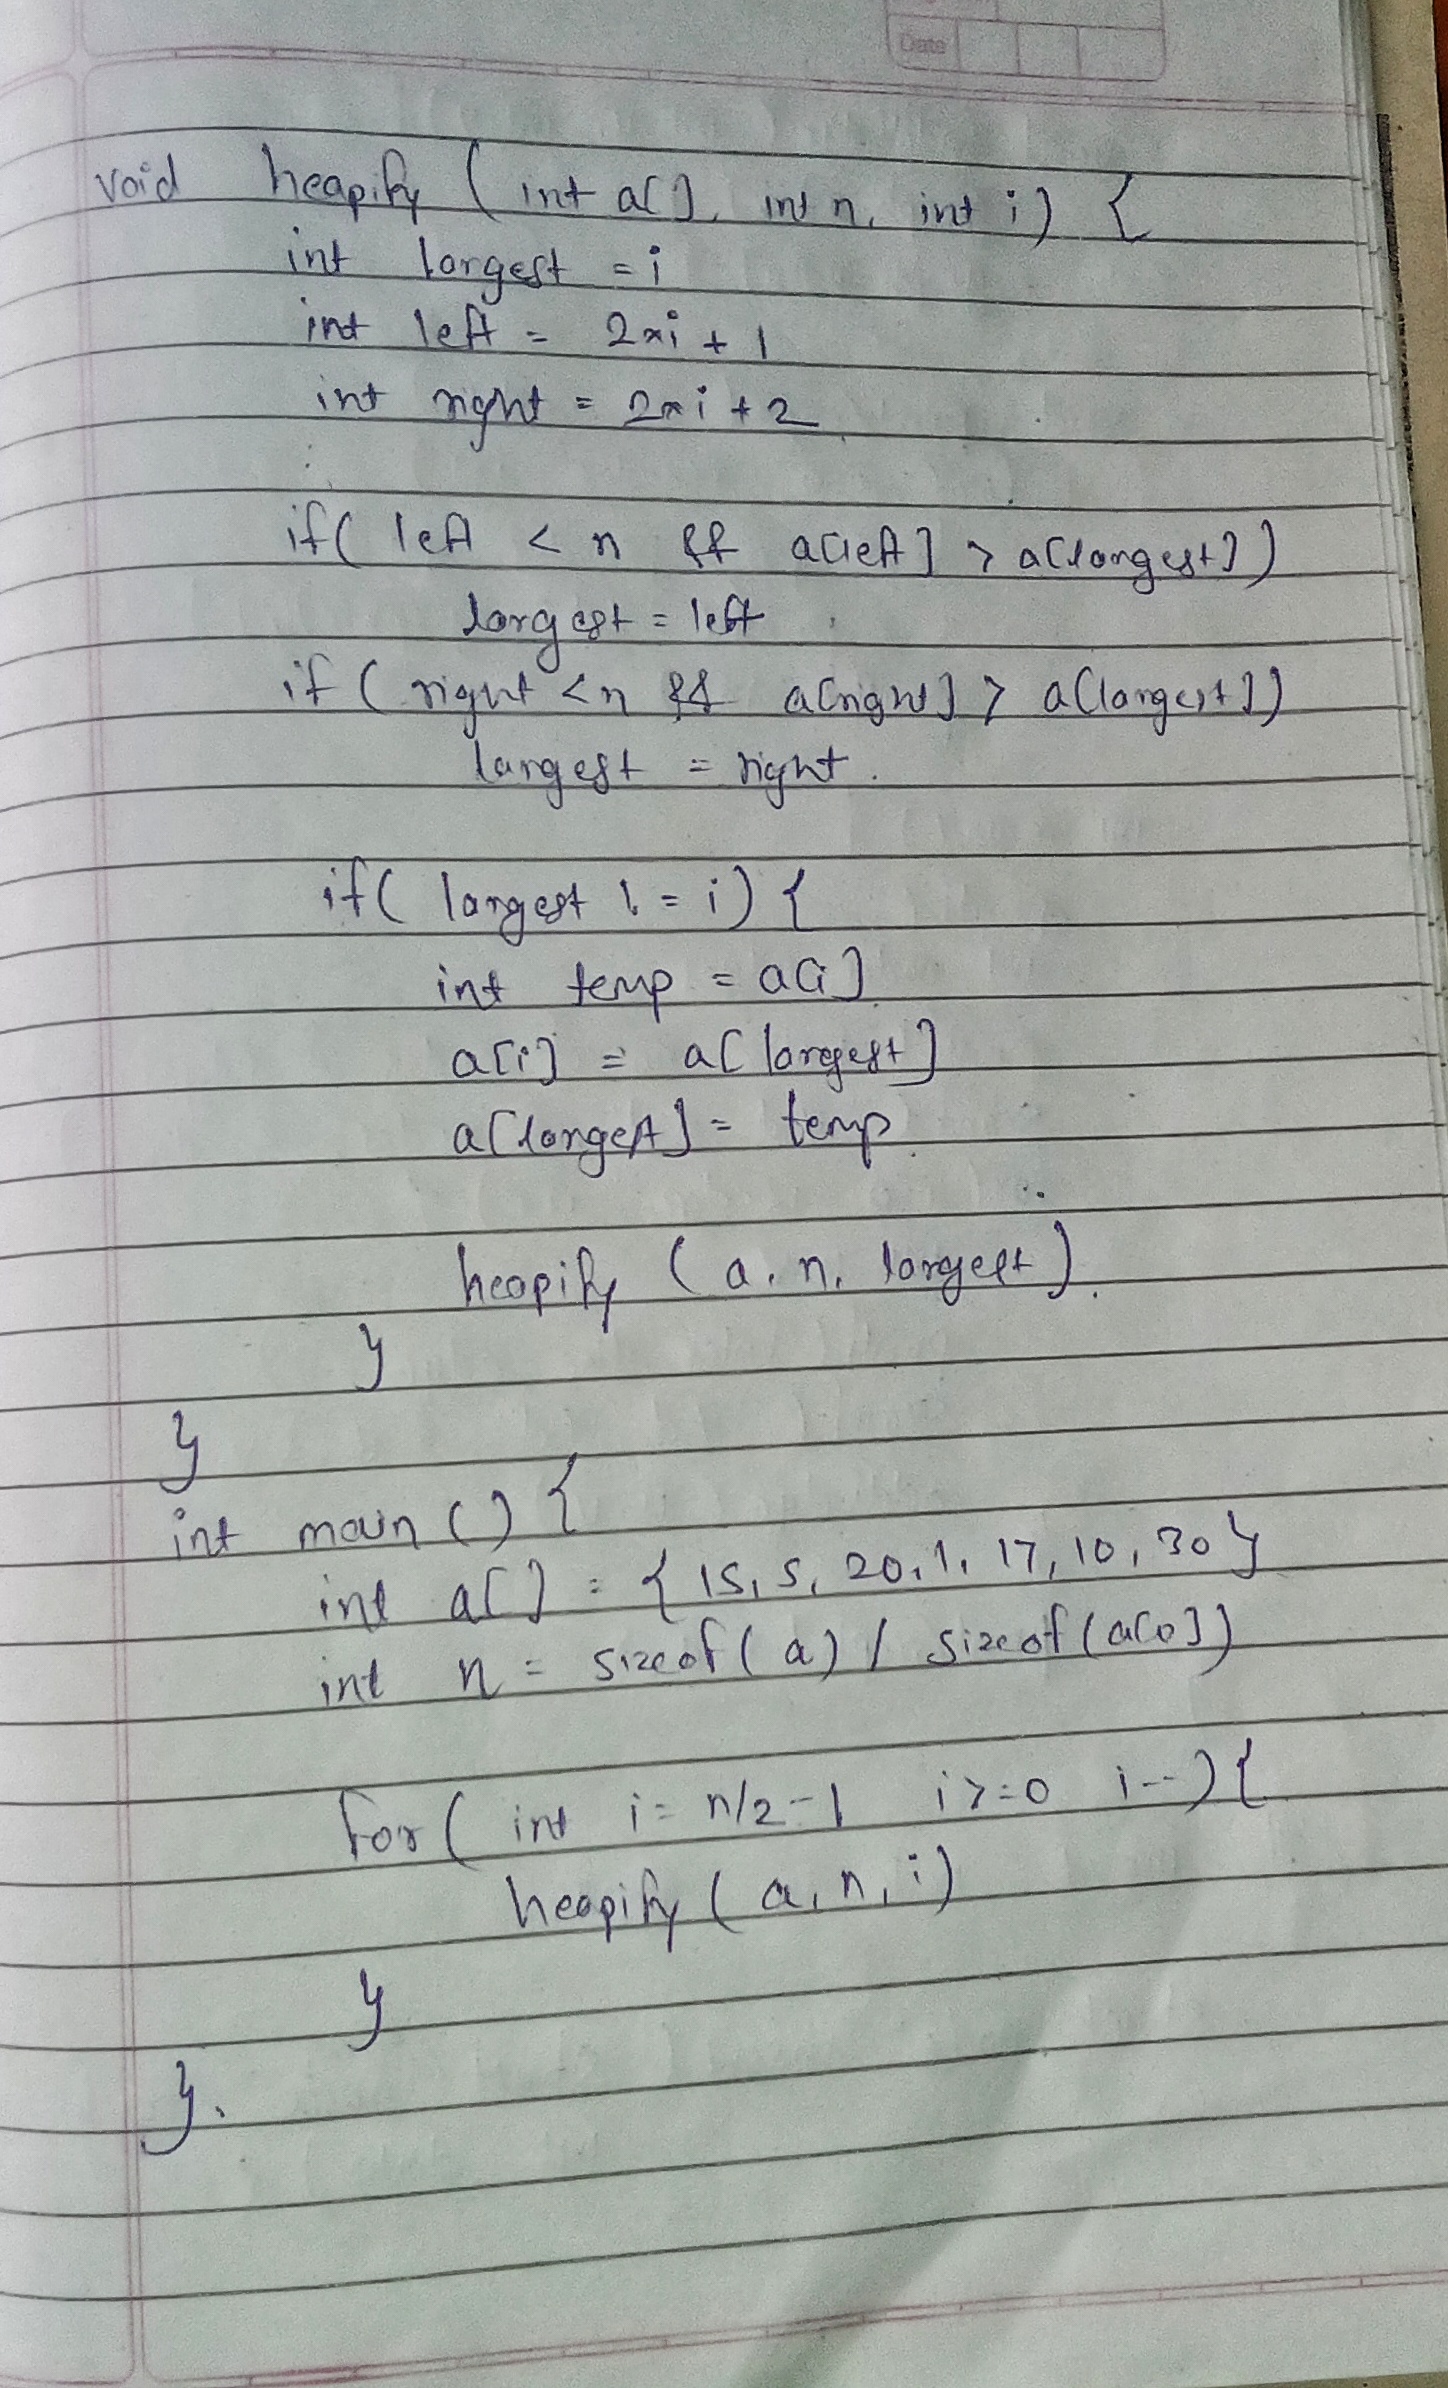 Date
void heapify ( int a[], int n, int i) {
int largest = i
int left = 2*i + 1
int right = 2*i + 2
if( left < n && a[left] > a[largest])
largest = left
if ( right < n && a[right] > a[largest])
largest = right.
if( largest != i) {
int temp = a[i]
a[i] = a[largest]
a[largest] = temp
heapify ( a, n, largest)
}
}
int main () {
int a[] = { 15, 5, 20, 1, 17, 10, 30 }
int n = sizeof( a) / sizeof(a[0])
for( int i = n/2-1 i>=0 i--) {
heapify ( a, n, i)
}
}.